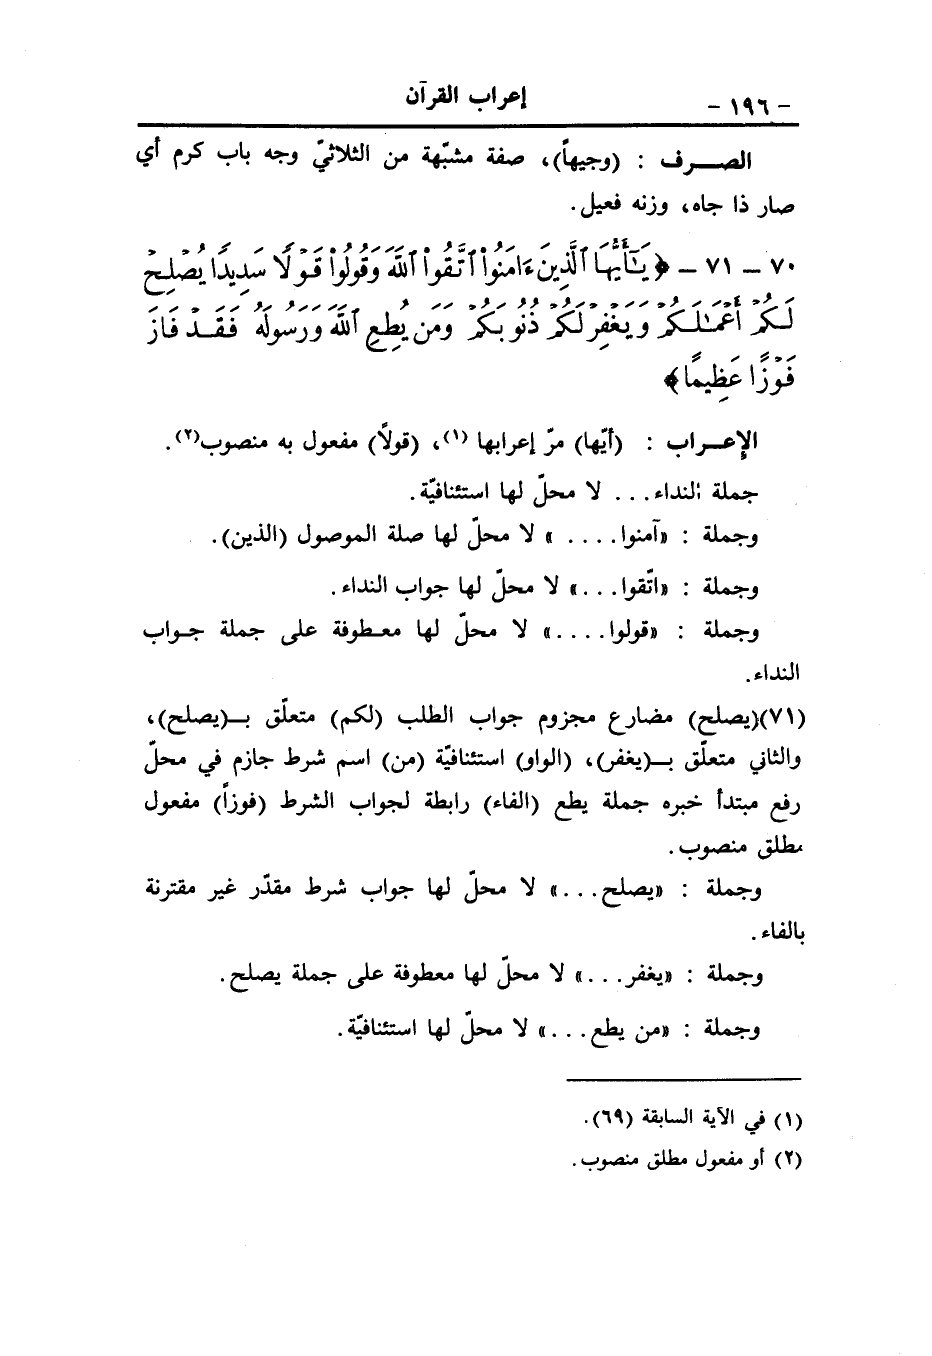 - ١٩٦ - إعراب القرآن
الصـــرف : (وجيهاً)، صفة مشبّهة من الثلاثيّ وجه باب كرم أي
صار ذا جاه، وزنه فعيل.
٧٠ - ٧١ - ﴿ يَـٰٓأَيُّهَا ٱلَّذِينَ ءَامَنُوا۟ ٱتَّقُوا۟ ٱللَّهَ وَقُولُوا۟ قَوْلًا سَدِيدًا يُصْلِحْ
لَكُمْ أَعْمَـٰلَكُمْ وَيَغْفِرْ لَكُمْ ذُنُوبَكُمْ وَمَن يُطِعِ ٱللَّهَ وَرَسُولَهُ فَقَدْ فَازَ
فَوْزًا عَظِيمًا ﴾
الإعـــراب : (أيّها) مرّ إعرابها (١)، (قولاً) مفعول به منصوب(٢).
جملة النداء... لا محلّ لها استئنافيّة.
وجملة : «آمنوا.... » لا محلّ لها صلة الموصول (الذين).
وجملة : «اتّقوا...» لا محلّ لها جواب النداء.
وجملة : «قولوا....» لا محلّ لها معـطوفة على جملة جـواب
النداء.
(٧١)(يصلح) مضارع مجزوم جواب الطلب (لكم) متعلّق بـ(يصلح)،
والثاني متعلّق بـ(يغفر)، (الواو) استئنافيّة (من) اسم شرط جازم في محلّ
رفع مبتدأ خبره جملة يطع (الفاء) رابطة لجواب الشرط (فوزاً) مفعول
مطلق منصوب.
وجملة : «يصلح...» لا محلّ لها جواب شرط مقدّر غير مقترنة
بالفاء.
وجملة : «يغفر...» لا محلّ لها معطوفة على جملة يصلح.
وجملة : «من يطع...» لا محلّ لها استئنافيّة.
(١) في الآية السابقة (٦٩).
(٢) أو مفعول مطلق منصوب.